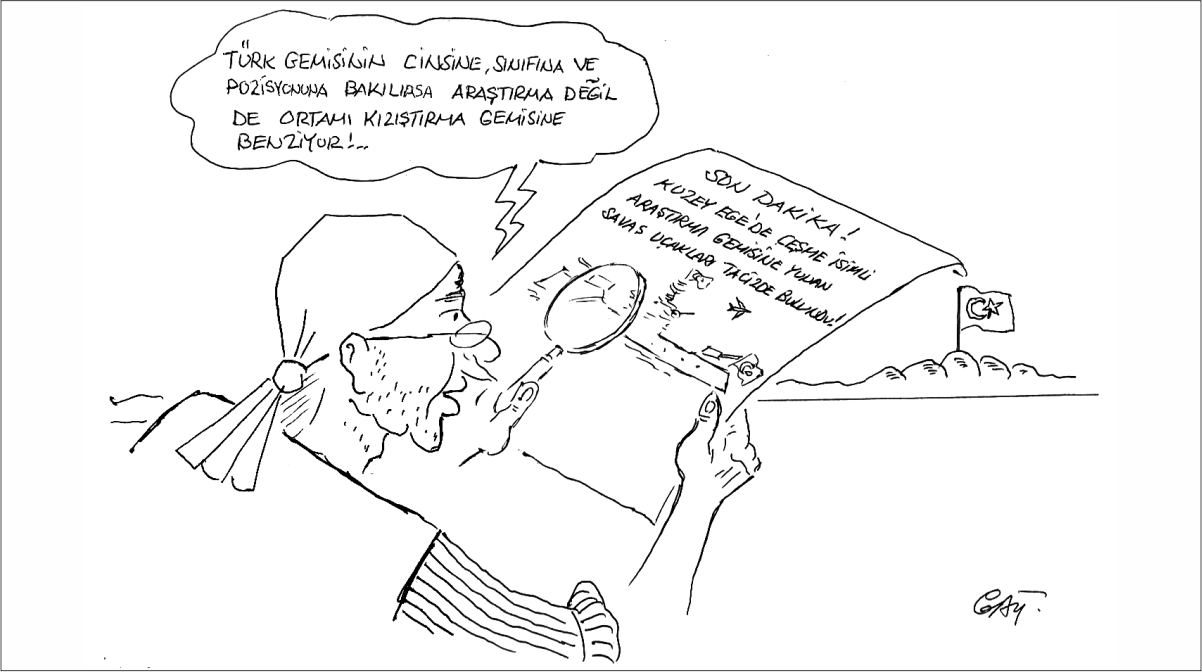 TÜRK GEMİSİNİN CİNSİNE, SINIFINA VE
POZİSYONUNA BAKILIRSA ARAŞTIRMA DEĞİL
DE ORTAMI KIZIŞTIRMA GEMİSİNE
BENZİYOR!...
SON DAKİKA!
KUZEY EGE'DE ÇEŞME İSİMLİ
ARAŞTIRMA GEMİSİNE YUNAN
SAVAŞ UÇAKLARI TACİZDE BULUNDU!